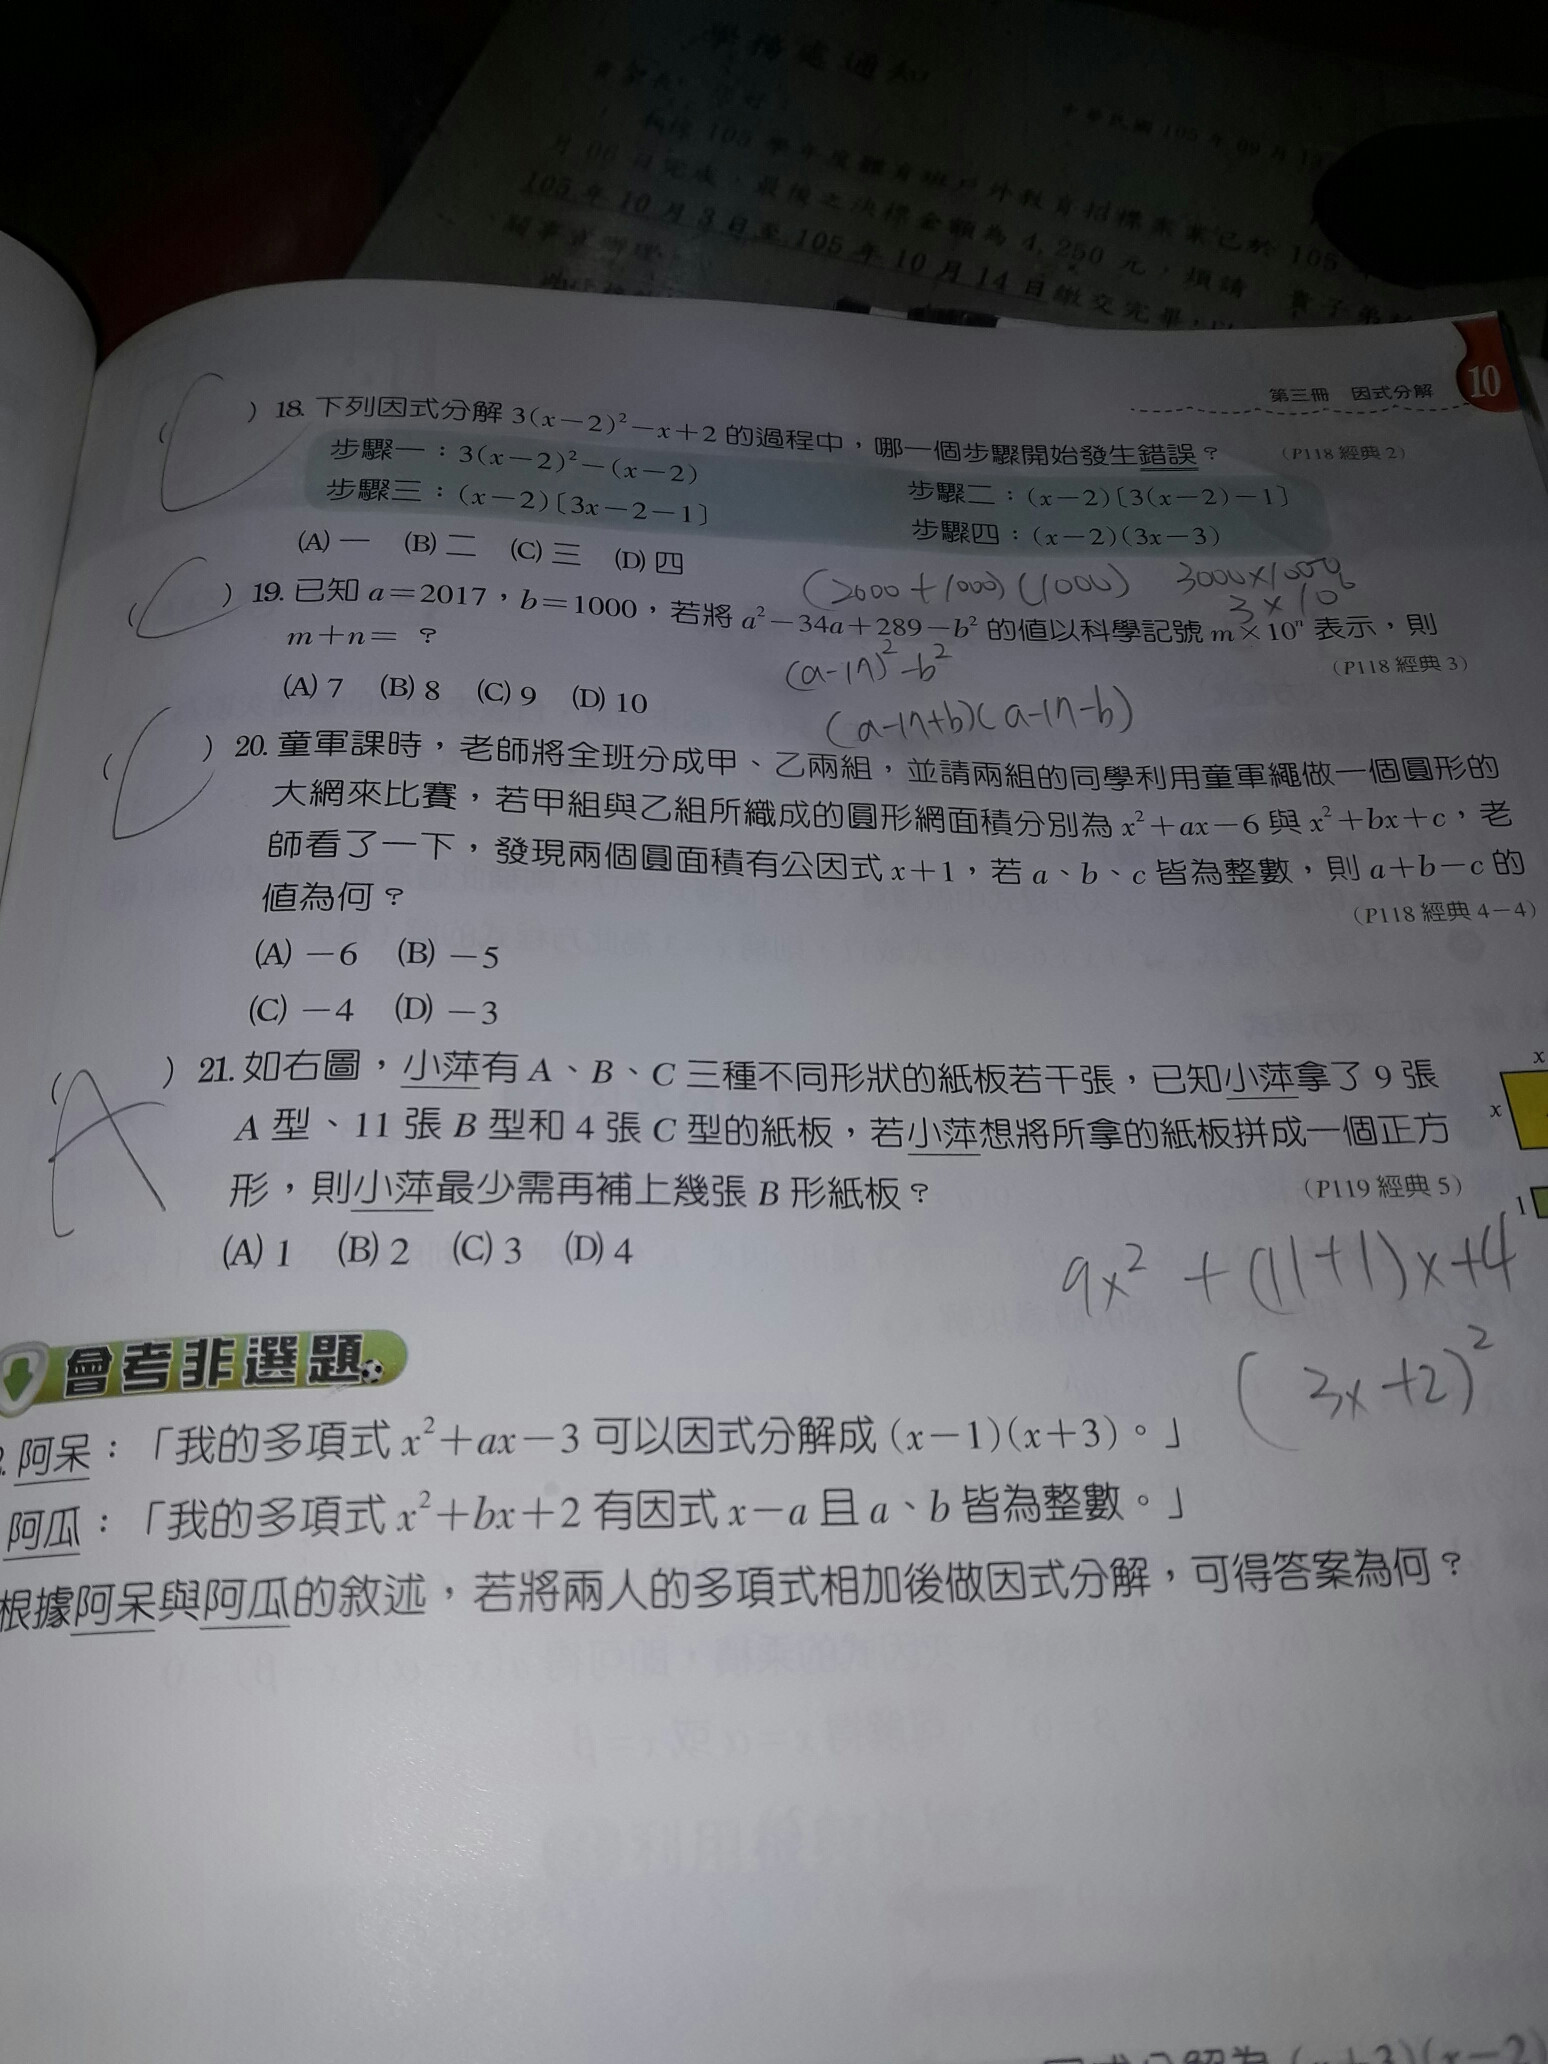 學務處通知
中華民國105年09月13
105年10月3日至105年10月14日繳交完畢，
第三冊 因式分解 10
( C ) 18. 下列因式分解 3(x－2)²－x＋2 的過程中，哪一個步驟開始發生錯誤？ (P118 經典 2)
步驟一：3(x－2)²－(x－2) 步驟二：(x－2)〔3(x－2)－1〕
步驟三：(x－2)〔3x－2－1〕 步驟四：(x－2)(3x－3)
(A) 一 (B) 二 (C) 三 (D) 四
(2000＋1000)(1000) 3000×1000
3×10⁶
( C ) 19. 已知 a＝2017，b＝1000，若將 a²－34a＋289－b² 的值以科學記號 m×10ⁿ 表示，則
m＋n＝？ (P118 經典 3)
(a-17)²-b²
(A) 7 (B) 8 (C) 9 (D) 10
(a-17+b)(a-17-b)
( C ) 20. 童軍課時，老師將全班分成甲、乙兩組，並請兩組的同學利用童軍繩做一個圓形的
大網來比賽，若甲組與乙組所織成的圓形網面積分別為 x²＋ax－6 與 x²＋bx＋c，老
師看了一下，發現兩個圓面積有公因式 x＋1，若 a、b、c 皆為整數，則 a＋b－c 的
值為何？ (P118 經典 4－4)
(A) －6 (B) －5
(C) －4 (D) －3
( A ) 21. 如右圖，小萍有 A、B、C 三種不同形狀的紙板若干張，已知小萍拿了 9 張
A 型、11 張 B 型和 4 張 C 型的紙板，若小萍想將所拿的紙板拼成一個正方
形，則小萍最少需再補上幾張 B 形紙板？ (P119 經典 5)
x
x
1
(A) 1 (B) 2 (C) 3 (D) 4
9x²＋(11+1)x+4
(3x+2)²
會考非選題
阿呆：「我的多項式 x²＋ax－3 可以因式分解成 (x－1)(x＋3)。」
阿瓜：「我的多項式 x²＋bx＋2 有因式 x－a 且 a、b 皆為整數。」
根據阿呆與阿瓜的敘述，若將兩人的多項式相加後做因式分解，可得答案為何？